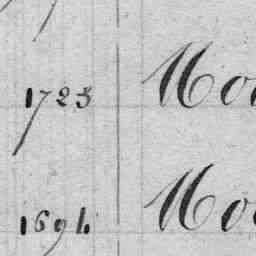 1723 Mo
1694 Mo